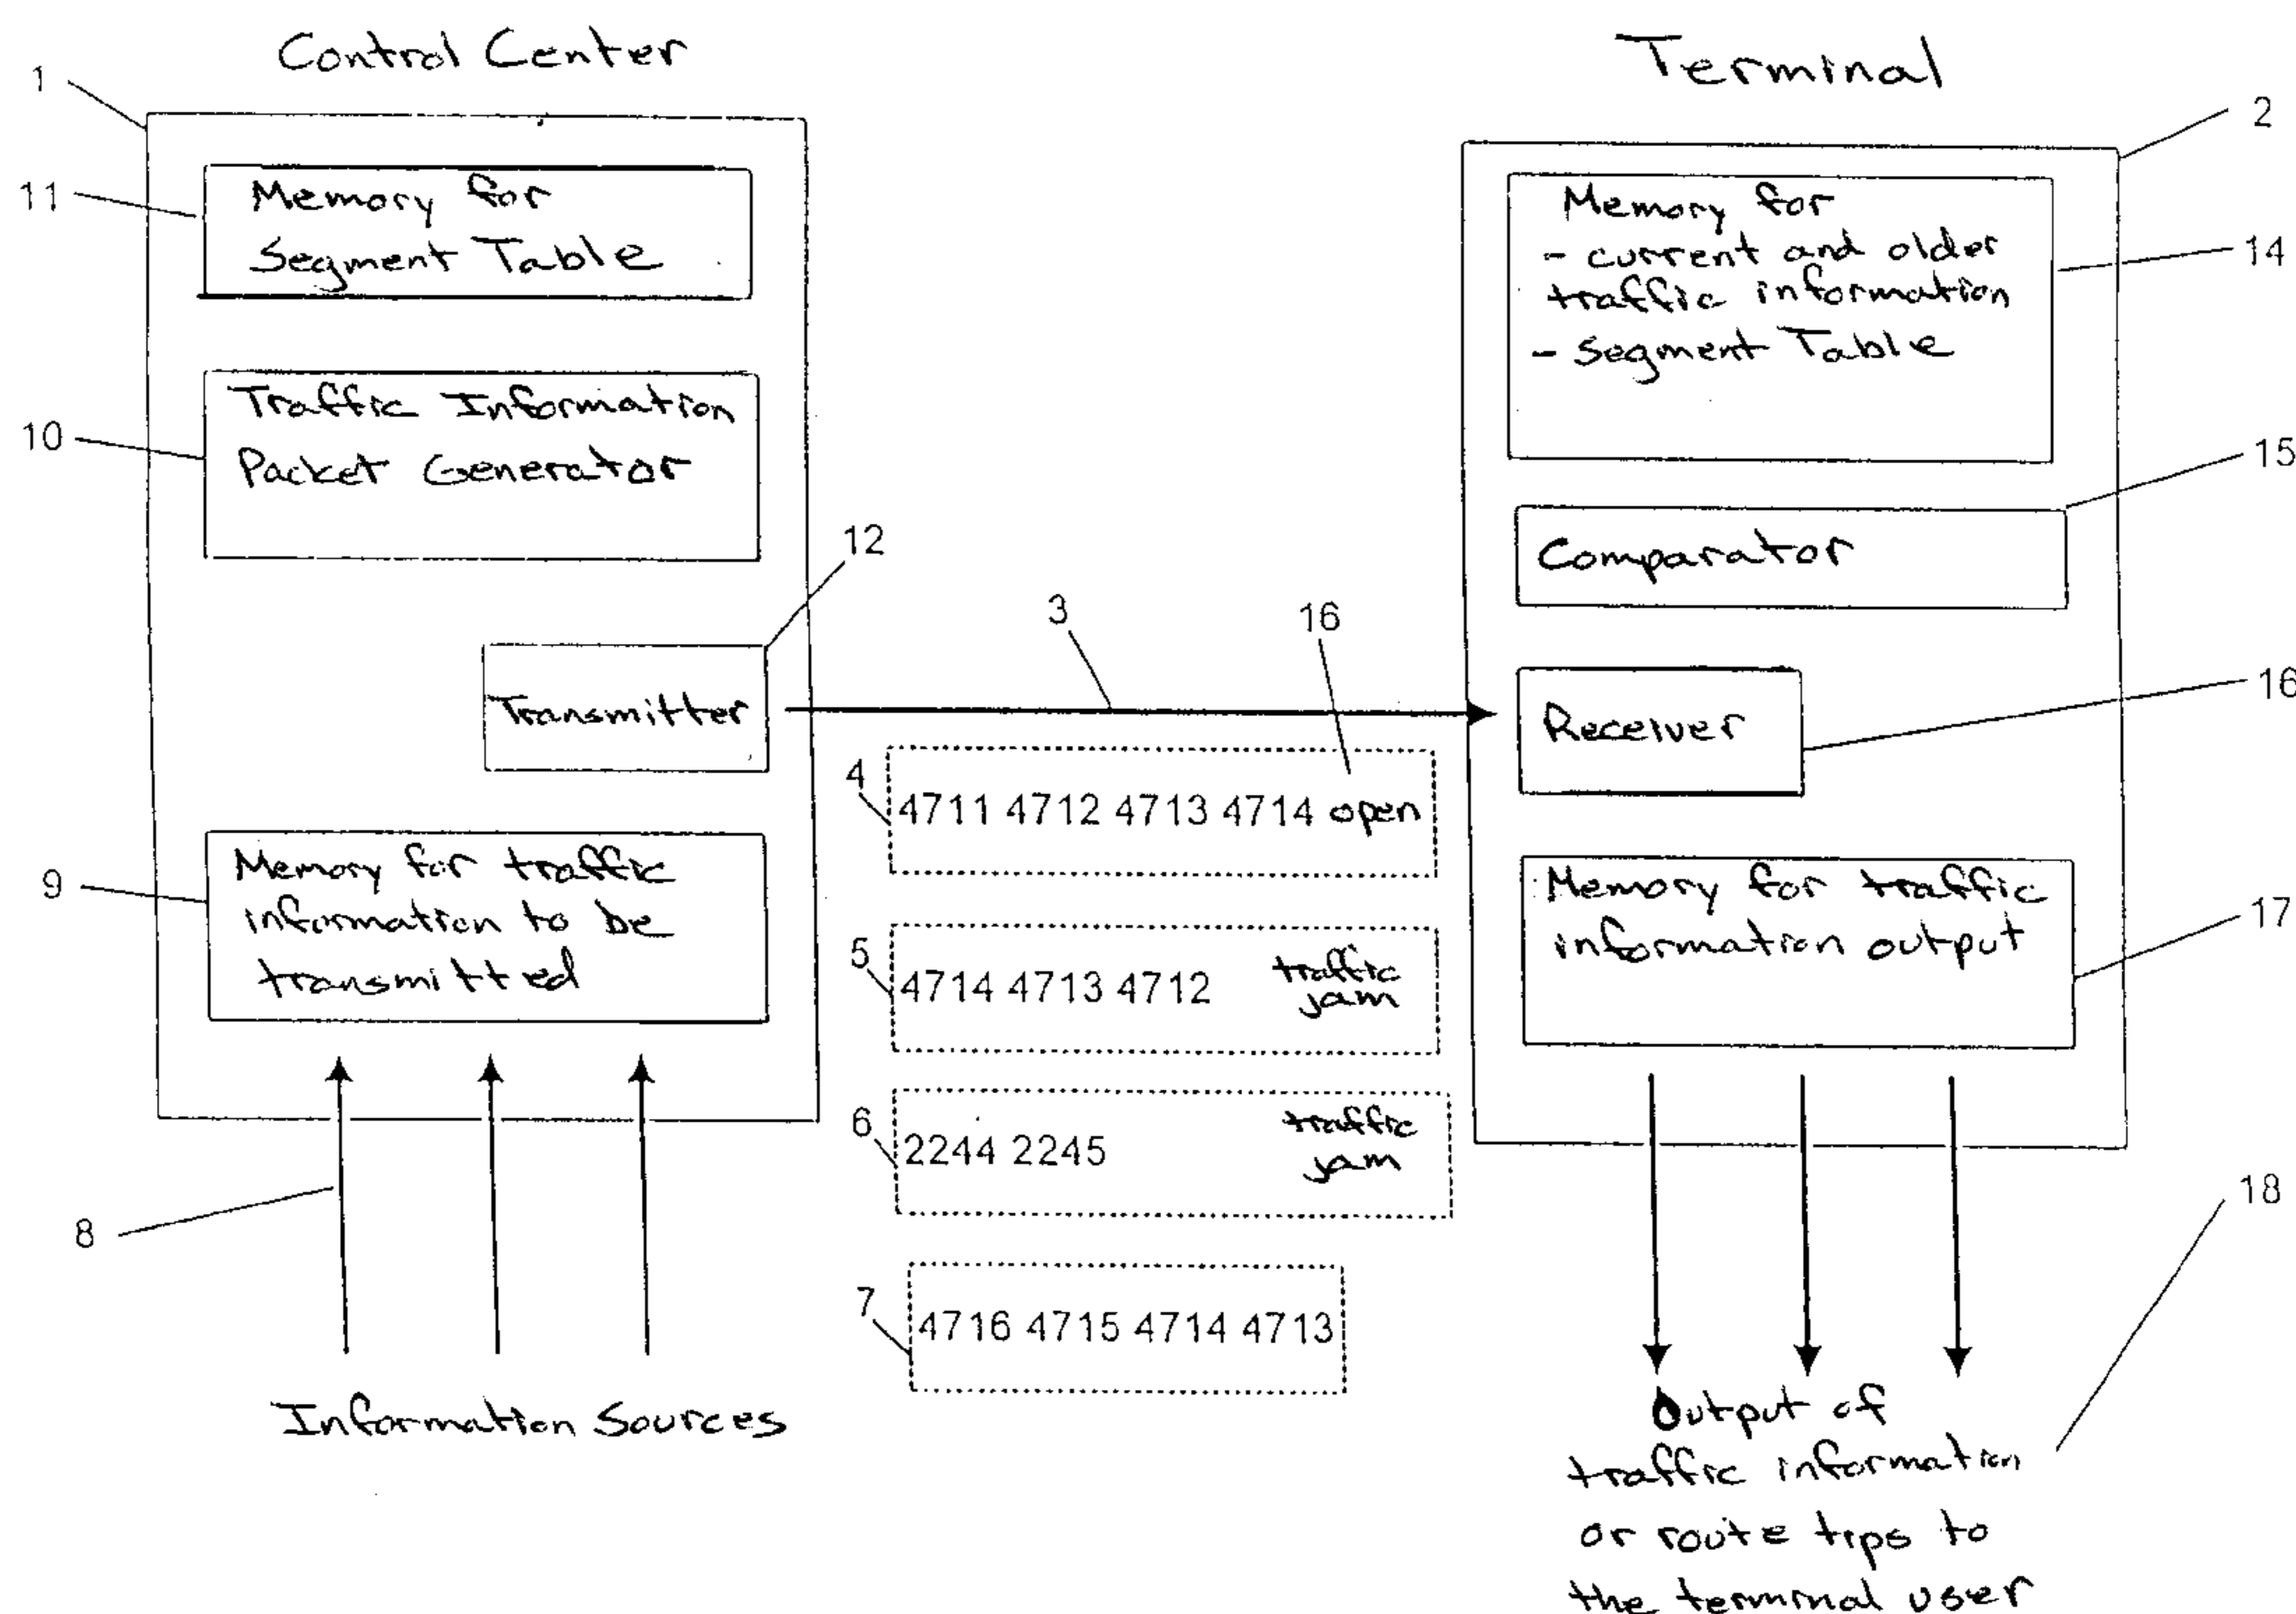 Control Center
1
11
Memory for
Segment Table
10
Traffic Information
Packet Generator
12
Transmitter
9
Memory for traffic
information to be
transmitted
8
Information Sources
3
16
4
4711 4712 4713 4714 open
5
4714 4713 4712 traffic
jam
6
2244 2245 traffic
jam
7
4716 4715 4714 4713
Terminal
2
Memory for
- current and older
traffic information
- Segment Table
14
15
Comparator
16
Receiver
Memory for traffic
information output
17
18
Output of
traffic information
or route tips to
the terminal user